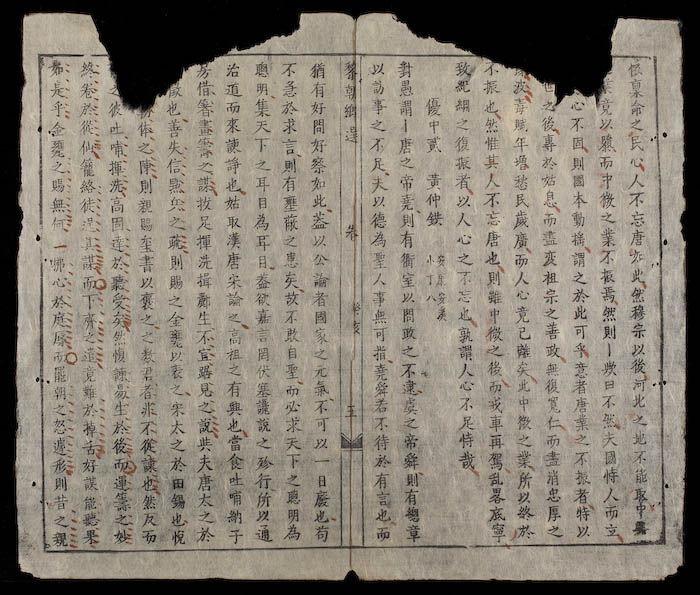 稟命之民心人不忘唐亦此然穆宗以後河北之地不能取中興
業竟以隳而中微之業不振焉然則一歟曰不然夫國恃人而立
心不固則國本動搖謂之於此可乎意者唐業之不振者特以
世之後專於姑息而盡变祖宗之善政無復寬仁而盡消忠厚之
餘波毒賦年增愁民歲廣而人心竟已離矣此中微之業所以終於
不振也然惟其人不忘唐也則雖中微之後而戎車再駕乱畧底寧
致紀綱之復振者以人心之不忘也孰謂人心不足恃哉
優中貳 黃仲鉄 安康安美 小丁八
對愚謂一唐之帝堯則有衢室以問政之不逮虞之帝舜則有總章
以訪事之不足夫以德為聖人事無可指堯舜若不待於有言也而
黎朝鄉選 卷 癸亥 五
猶有好問好察如此蓋以公論者國家之元氣不可以一日廢也苟
不急於求言則有壅蔽之患矣故不敢自聖而必求天下之聰明為
聰明集天下之耳目為耳目蓋欲嘉言罔伏塞讒說之殄行所以通
治道而來諫諍也姑取漢唐宋論之高祖之有興也當食吐哺納子
房借箸畫籌之謀披足揮洗揖酈生不宜踞見之說共夫唐太之於
也善失信點兵之疏則賜之金甕以褒之宋太之於田錫也悅
俸之陳則親賜璽書以褒之之数君者非不從諫也然反而
之彼吐哺揮洗高固達於聽受矣然愎諫易生於後而運籌之妙
終卷於從仙籠絡徒逞其謀而下齊之道竟難於掉舌好謀能聽果
如是乎金甕之賜無何一哪心於庭辱而罷朝之怒遽形則昔之親